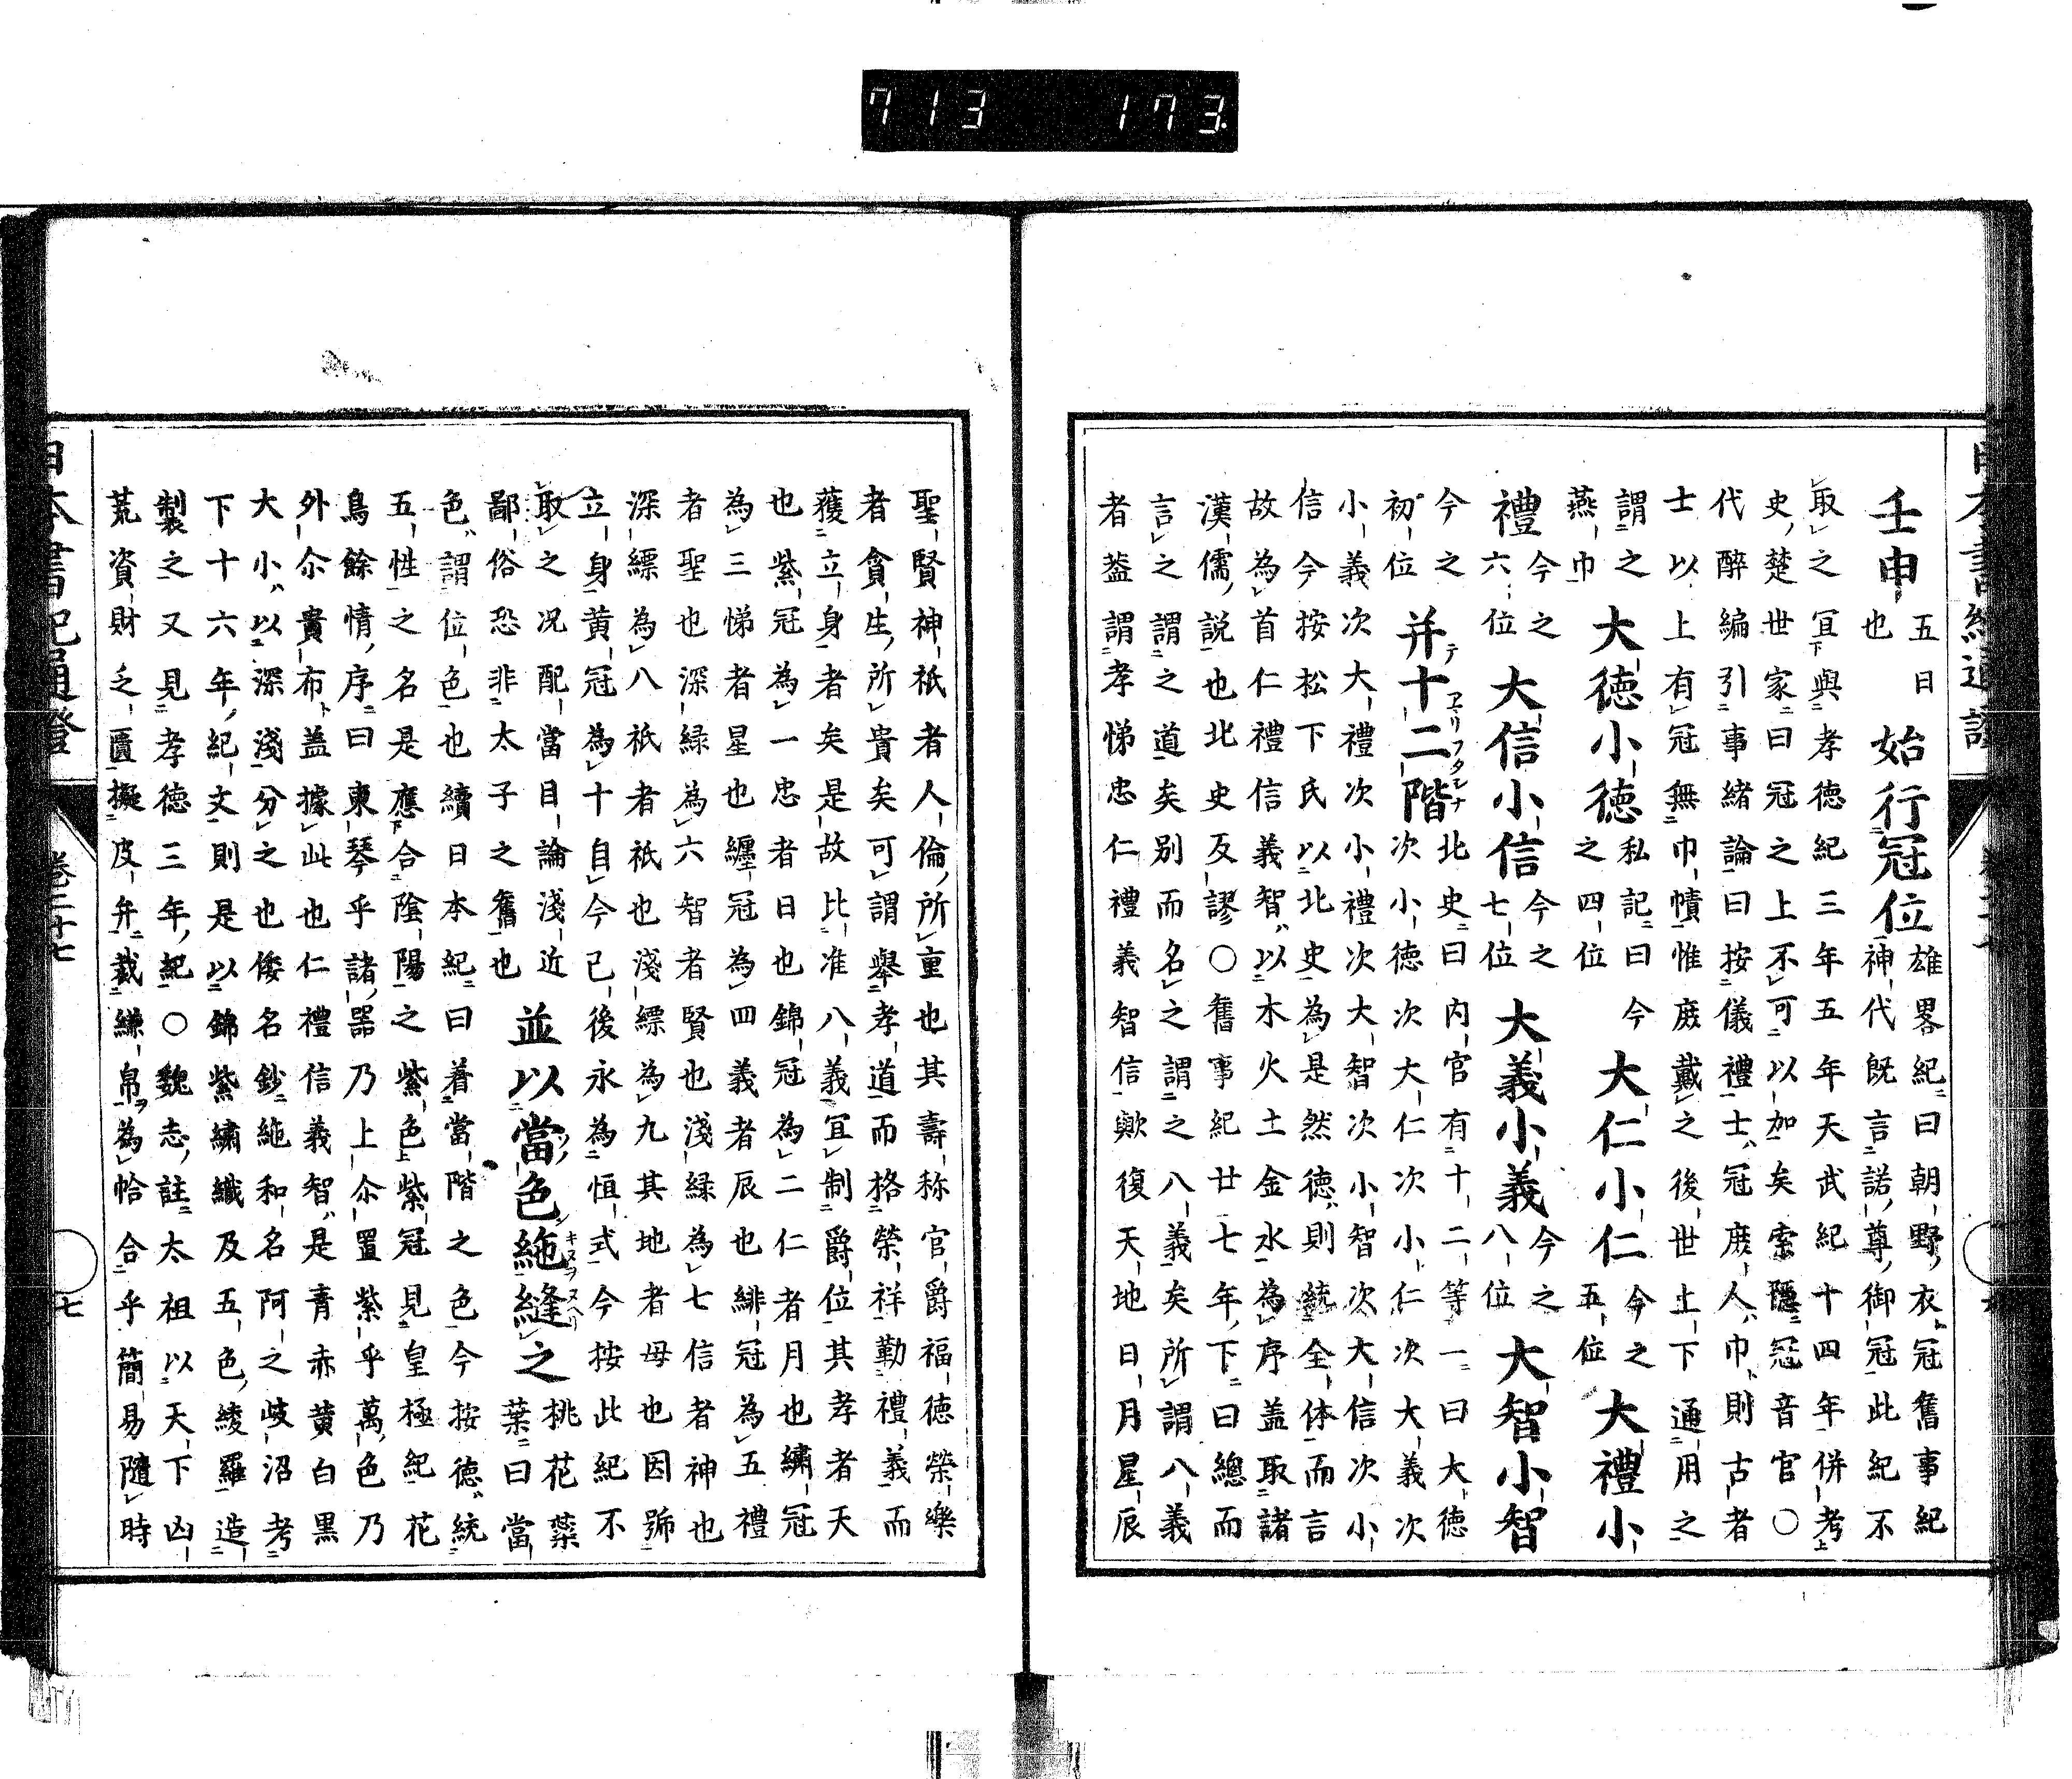 713 173
壬申五日也始行冠位雄畧紀曰朝野衣冠舊事紀神代既言諾尊御冠此紀不
取之宜與孝德紀三年五年天武紀十四年併考
史楚世家曰冠之上不可以加矣索隱冠音官〇
代醉編引事緒論曰按儀禮士冠庶人巾則古者
士以上有冠無巾幘惟庶戴之後世上下通用之
謂之燕巾大德小德私記曰今之四位大仁小仁今之五位大禮小
禮今之六位大信小信今之七位大義小義今之八位大智小智
今之初位并十二階北史曰内官有十二等一曰大德次小德次大仁次小仁次大義次
小義次大禮次小禮次大智次小智次大信次小
信今按松下氏以北史為是然德則統全体而言
故為首仁禮信義智以木火土金水為序盖取諸
漢儒說也北史反謬〇舊事紀廿七年下曰總而
言之謂之道矣別而名之謂之八義矣所謂八義
者盖謂孝悌忠仁禮義智信歟復天地日月星辰
聖賢神祇者人倫所重也其壽称官爵福德榮樂
者貪生所貴矣可謂舉孝道而格榮祥勤禮義而
蒦立身者矣是故比准八義宜制爵位其孝者天
也紫冠為一忠者日也錦冠為二仁者月也繡冠
為三悌者星也纒冠為四義者辰也緋冠為五禮
者聖也深緑為六智者賢也淺緑為七信者神也
深縹為八祇者祇也淺縹為九其地者母也因號
立身黄冠為十自今已後永為恒式今按此紀不
取之况配當目論淺近鄙俗恐非太子之舊也並以當色絁縫之桃花蘂葉曰當
色謂位色也續日本紀曰着當階之色今按德統
五性之名是應合陰陽之紫色紫冠見皇極紀花
鳥餘情序曰東琴乎諸器乃上尒置紫乎萬色乃
外尒貴布盖據此也仁禮信義智是青赤黄白黒
大小以深淺分之也倭名鈔絁和名阿之岐沼考
下十六年紀文則是以錦紫繡織及五色綾羅造
製之又見孝德三年紀〇魏志註太祖以天下凶
荒資財乏匱擬皮弁裁縑帛為帢合乎簡易隨時
卷二十七 七